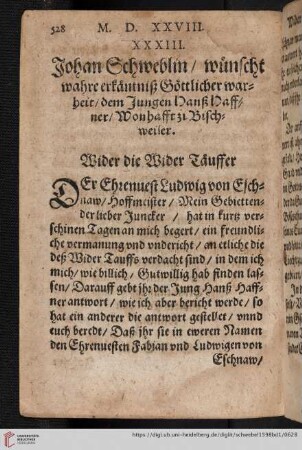 528 M. D. XXVIII.
XXXIII.
Johan Schweblin / wünscht
wahre erkäntniß Göttlicher war-
heit / dem Jungen Hanß Haff-
ner / Wonhafft zu Bisch-
weiler.
Wider die Wider Täuffer
DEr Ehrenuest Ludwig von Esch-
naw / Hoffmeister / Mein Gebietten-
der lieber Juncker / hat in kurtz ver-
schinen Tagen an mich begert / ein freundli-
che vermanung vnd vndericht / an etliche die
deß Wider Tauffs verdacht sind / in dem ich
mich / wie billich / Gutwillig hab finden las-
sen / Darauff gebt jhr der Jung Hanß Haff-
ner antwort / wie ich aber bericht werde / so
hat ein anderer die antwort gestellet / vnnd
euch beredt / Daß jhr sie in eweren Namen
den Ehrenuesten Fabian vnd Ludwigen von
Eschnaw /
https://digi.ub.uni-heidelberg.de/diglit/schwebel1598bd1/0628